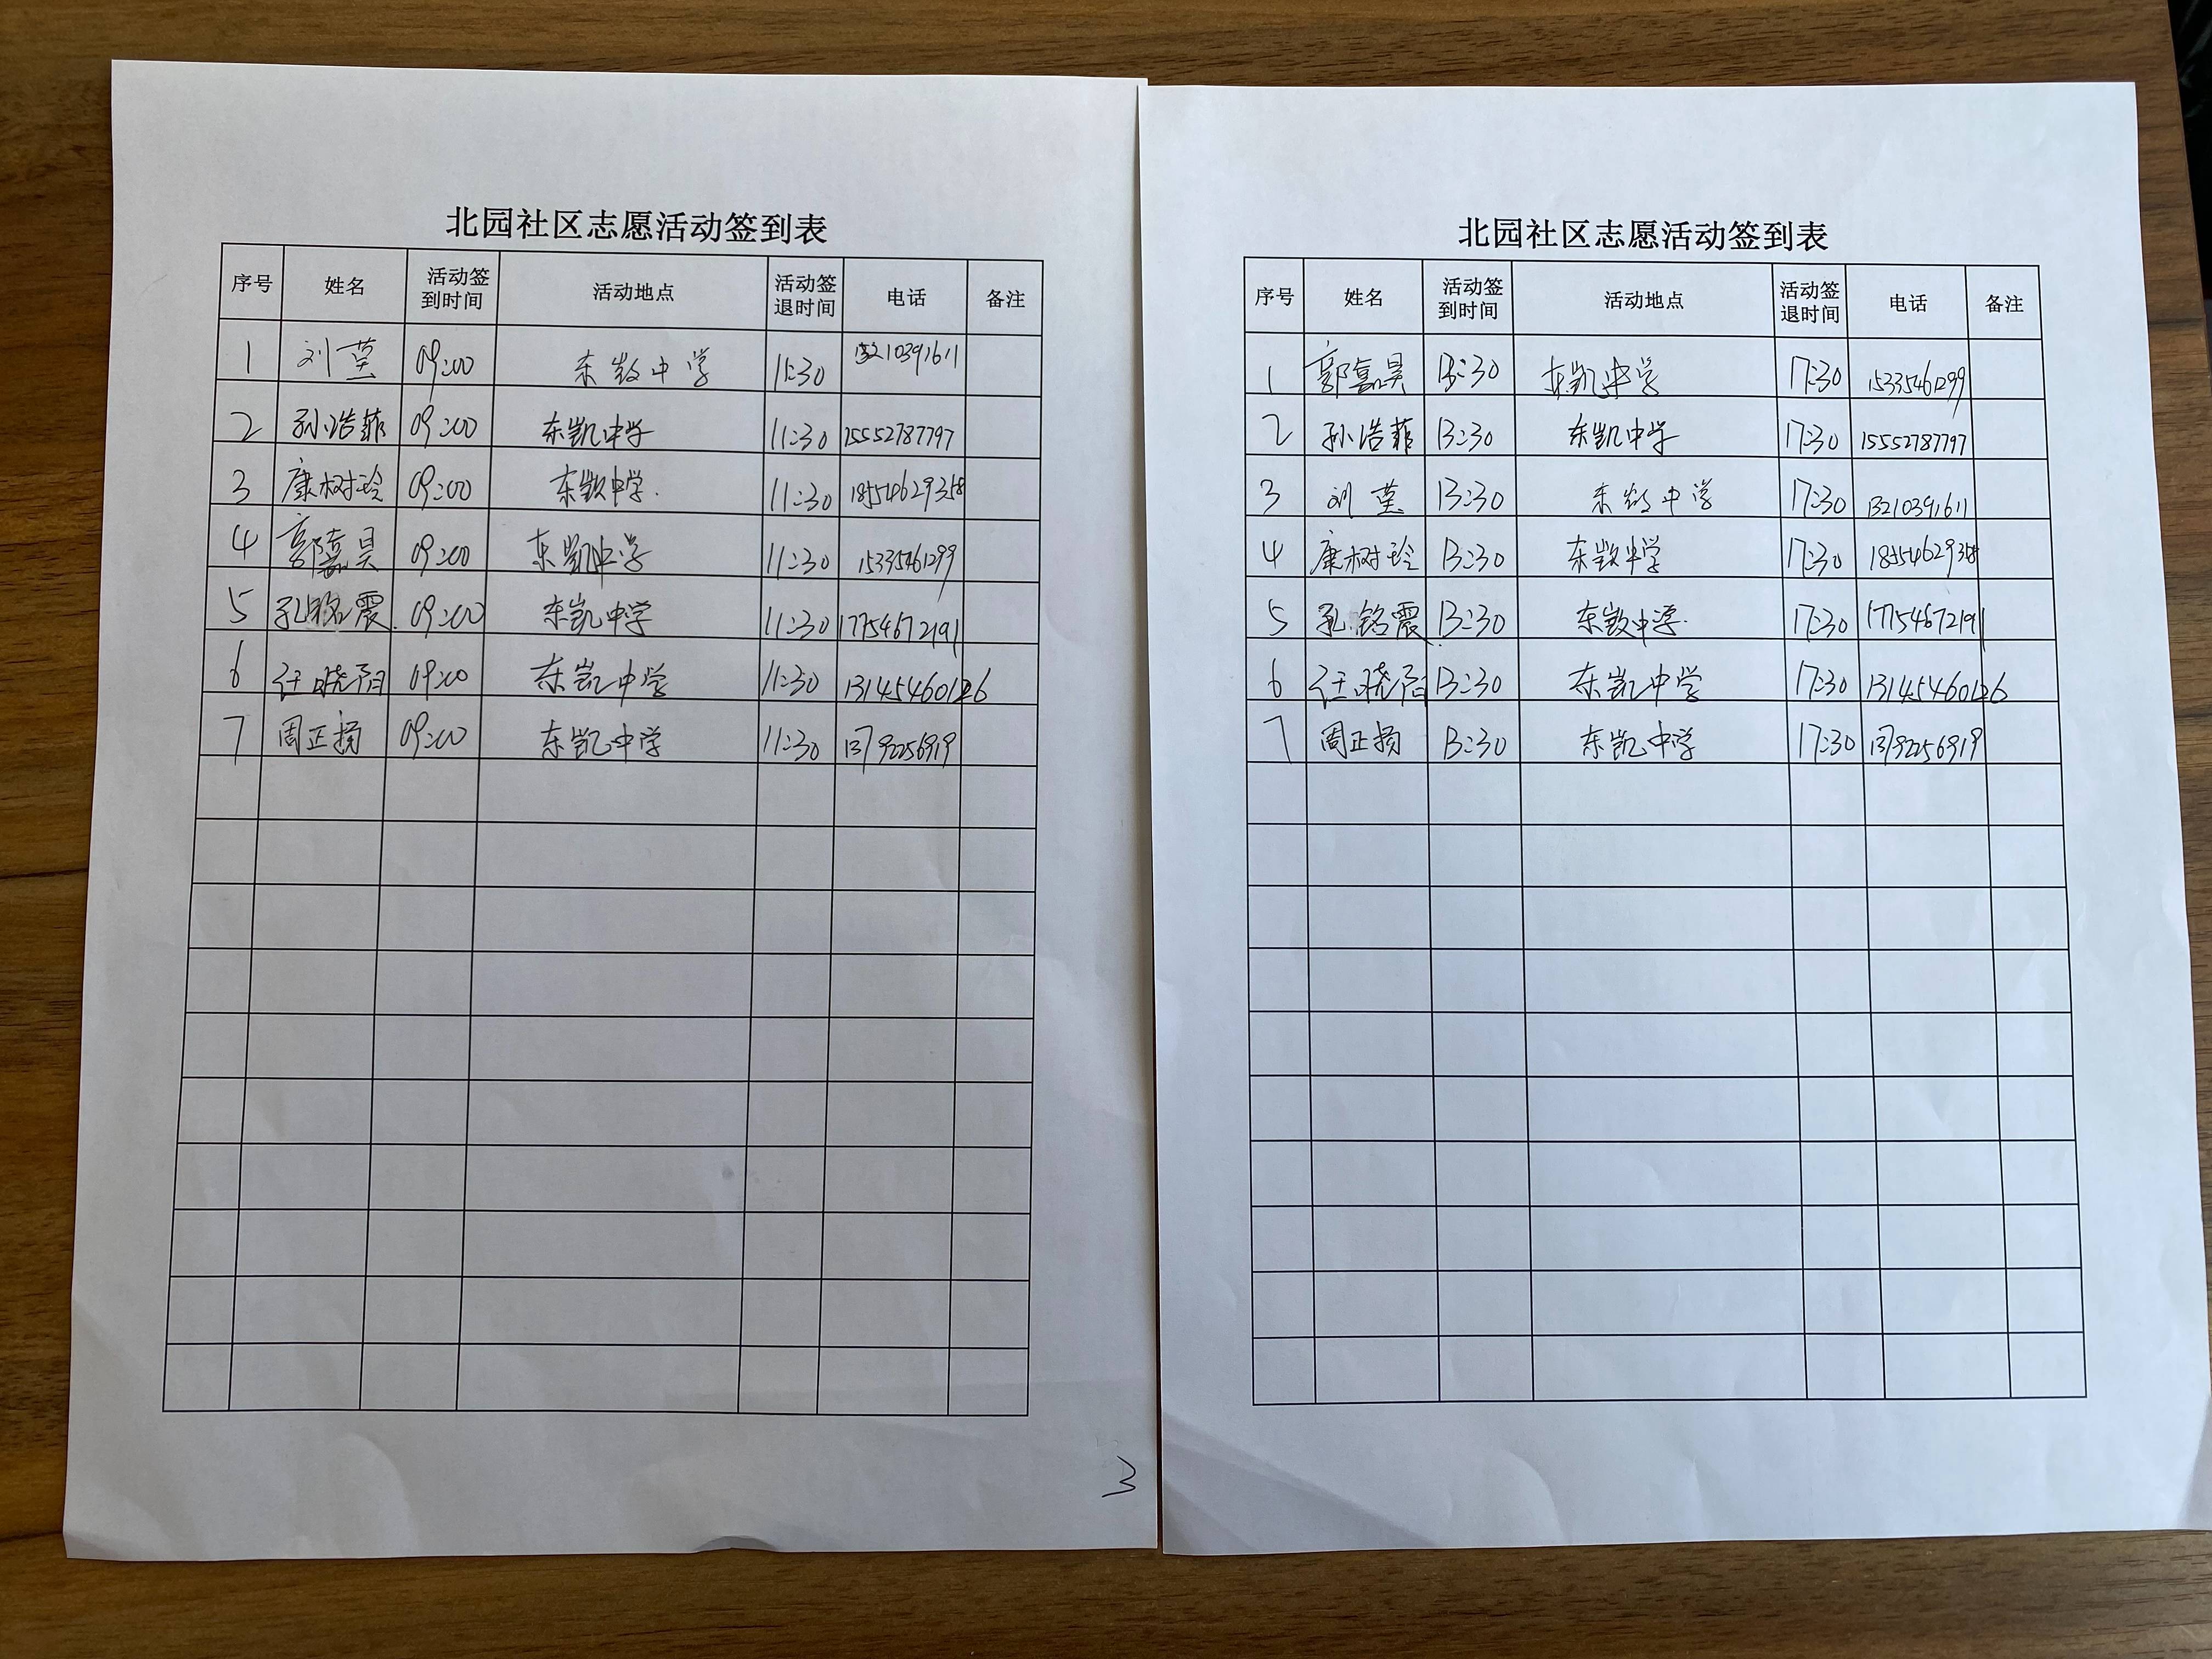 北园社区志愿活动签到表
序号 姓名 活动签到时间 活动地点 活动签退时间 电话 备注
1 刘莫 09:00 东凯中学 11:30 13210391611
2 孙浩菲 09:00 东凯中学 11:30 15552787797
3 康树玲 09:00 东凯中学. 11:30 18554629358
4 郭嘉昊 09:00 东凯中学 11:30 15335461299
5 孔铭震 09:00 东凯中学 11:30 17754672191
6 任晓阳 09:00 东凯中学 11:30
7 周正扬 09:00 东凯中学 11:30 13792256919
3
北园社区志愿活动签到表
序号 姓名 活动签到时间 活动地点 活动签退时间 电话 备注
1 郭嘉昊 13:30 东凯中学 17:30 15335461299
2 孙浩菲 13:30 东凯中学 17:30 15552787797
3 刘莫 13:30 东凯中学 17:30 13210391611
4 康树玲 13:30 东凯中学 17:30 18554629358
5 孔铭震 13:30 东凯中学. 17:30 17754672191
6 任晓阳 13:30 东凯中学 17:30
7 周正扬 13:30 东凯中学 17:30 13792256919